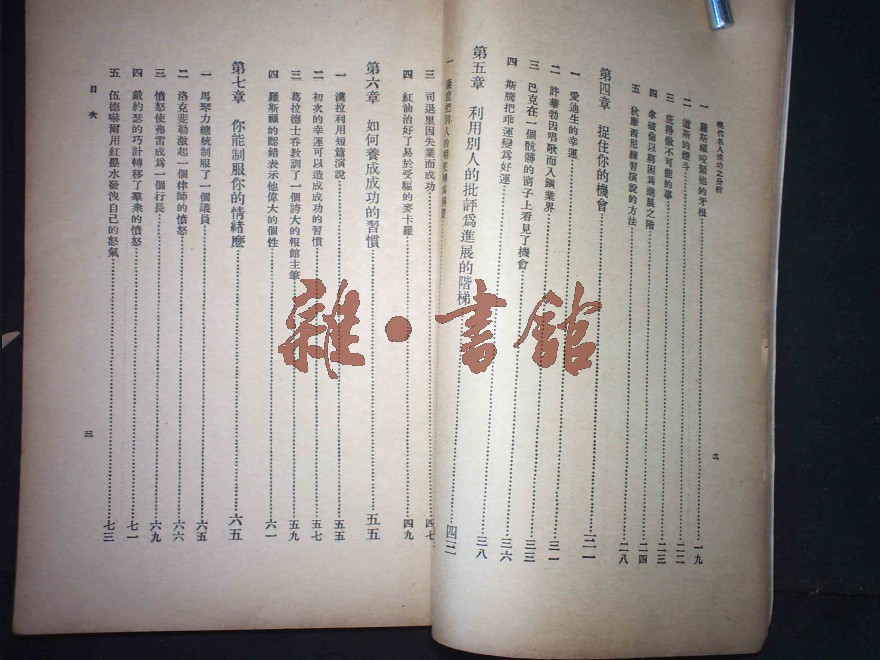 現代名人成功之分析
一 羅斯福咬緊他的牙根……一九
二 道斯的煙斗……二二
三 底得做不可能的事……二三
四 拿破倫以窮困爲進展之階……二四
五 狄摩西尼練習演說的方法……二八
第四章 捉住你的機會……三一
一 愛迪生的幸運
二 許華勃因唱歌而入鋼業界……三一
三 巴克在一個骯髒的窗子上看見了機會……三三
四 斯騰把乖運變爲好運……三六
第五章 利用別人的批評爲進展的階梯……三八
二
一
三 司退里因失業而成功……四七
四 紅油治好了易於受騙的麥卡羅……四九
第六章 如何養成成功的習慣……五五
一 漢拉利用短篇演說……五五
二 初次的幸運可以造成成功的習慣……五七
三 葛拉德士吞教訓了一個誇大的報館主筆……五九
四 羅斯福的認錯表示他偉大的個性……六一
第七章 你能制服你的情緒麼……六五
一 馬琴力總統制服了一個議員……六五
二 洛克斐勒激起一個律師的憤怒……六六
三 憤怒使弗雷成爲一個行長……六九
四 戴約瑟的巧計轉移了羣衆的憤怒……七一
五 伍德嚇爾用紅墨水發洩自己的怒氣……七三
目次
三
雜·書館